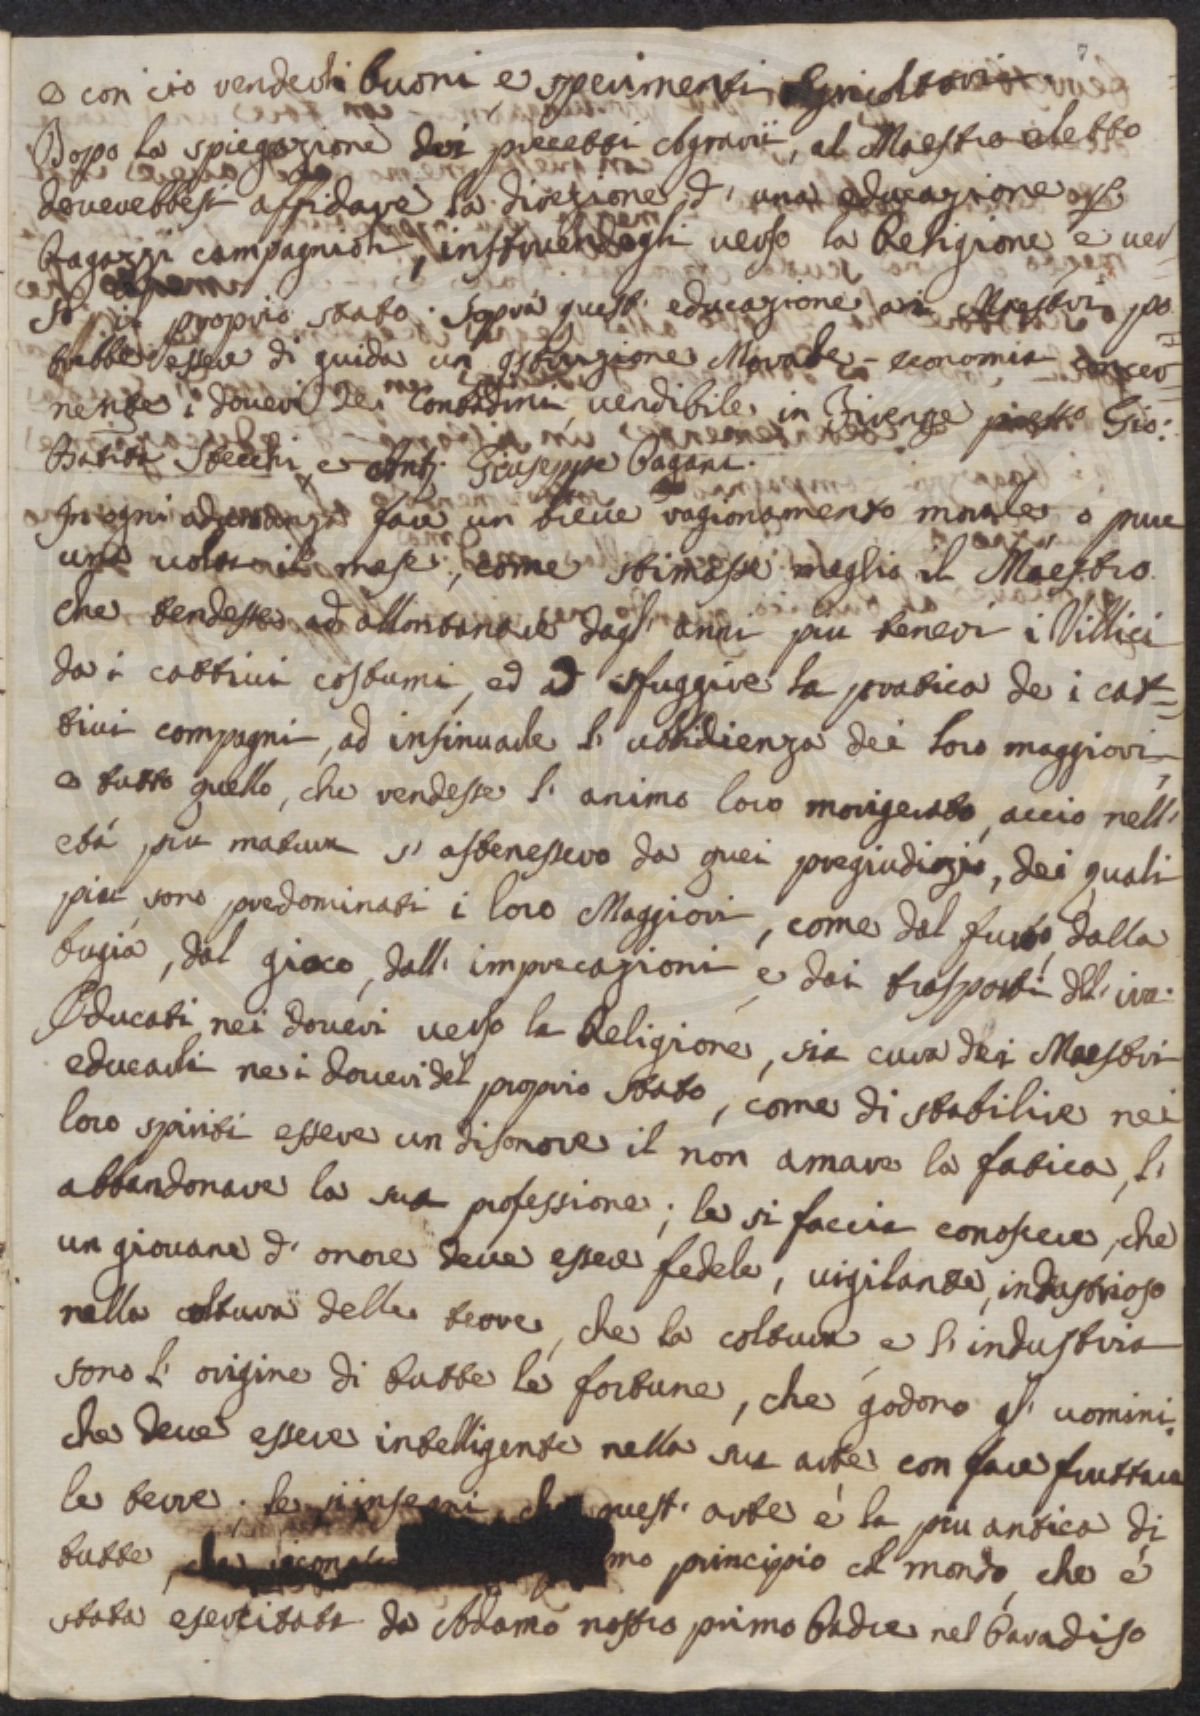 7
e con ció renderli buoni e sperimenti Agricoltori
Dopo la spiegazione dei precetti Agrarii, al Maestro eletto
doverebbesi affidare la direzione d' una educazione
Ragazzi campagnuoli, instruendogli verso la Religione e ver
so il proprio stato. Sopra quest' educazione ai Maestri po
trebbe esser di guida un' Istruzione Morale-economia concer=
nente i doveri dei Contadini vendibile in Firenze presso Gio:
Batista Stecchi, e Ant: Giuseppe Pagani.
In ogni adunanza fare un breve ragionamento morale o pure
una volta il mese, come stimasse meglio il Maestro
che tendesse ad allontanare dagl' anni piu teneri i Villici
da i cattivi costumi, ed a sfuggire la pratica de i cat=
tivi compagni, ad insinuarle l' ubbidienza dei loro maggiori,
e tutto quello, che rendesse l' animo loro morigerato, accio nell'
etá piu matura s' astenessero da quei pregiudizj, dei quali
piu sono predominati i loro Maggiori, come dal furto, dalla
bugia, dal gioco, dall' imprecazioni e dai trasporti dll' ira.
Educati nei doveri verso la Religione, sia cura dei Maestri
educarli nei doveri del proprio stato, come di stabilire nei
loro spiriti essere un disonore il non amare la fatica, l'
abbandonare la sua professione; le si faccia conoscere, che
un giovane d' onore deve essere fedele, vigilante, industrioso
nella coltura delle terre, che la coltura e l' industria
sono l' origine di tutte le fortune, che godono gl' uomini.
che deve essere intelligente nella sua arte con fare fruttare
le terre. le s'insegni che quest' arte é la piu antica di
tutte, che mo principio del mondo, che é
stata esercitata da Adamo nostro primo Padre nel Paradiso